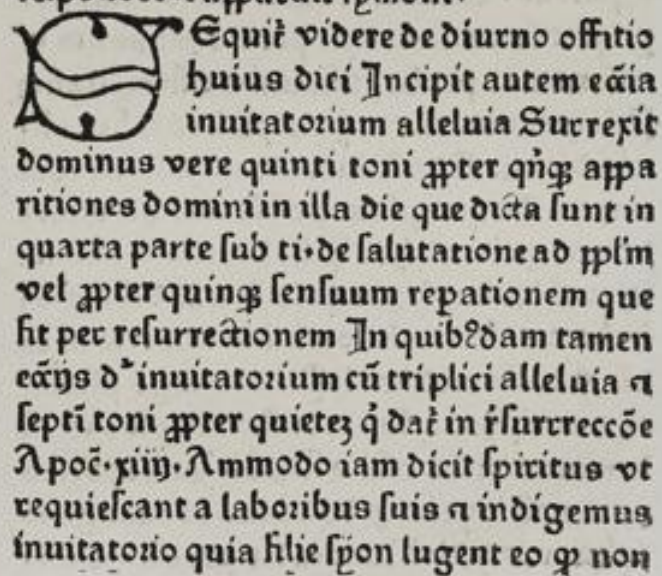 SEquit᷑ videre de diurno offitio
huius diei Incipit autem ecc̄ia
inuitatorium alleluia Surrexit
dominus vere quinti toni ꝓpter qn̄qꝫ appa
ritiones domini in illa die que dicta sunt in
quarta parte sub ti·de salutatione ad ppl'm
vel ꝓpter quinqꝫ sensuum repationem que
fit per resurrectionem In quibꝰdam tamen
ecc̄ijs dʳ inuitatorium cū triplici alleluia ⁊
septī toni ꝓpter quietez q̇ dat᷑ in r̄surreccōe
Apoc̄·xiiij·Ammodo iam dicit spiritus vt
requiescant a laboribus suis ⁊ indigemus
inuitatorio quia filie syon lugent eo ꝙ non